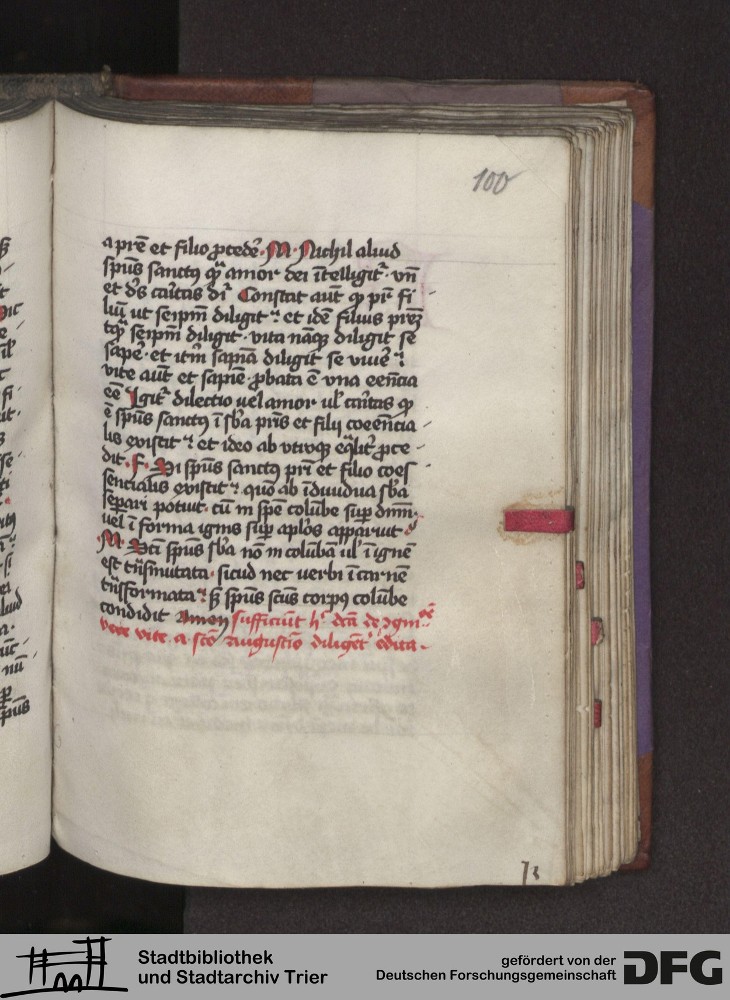 100
a prē et filio ꝓcedē. M. Nichil aliud
spūs sanctꝰ qͣ amor dei ītelligit᷑. vn̄
et dʼs cāitas di᷑ Constat aūt ꝙ pr̄ fi
liū ut seip̄m diligit ⁊ et idē filius prēꝫ
tqͣ seip̄m diligit. vita nāqꝫ diligit se
sapē. et itm̄ sapiā diligit se viuē ⁊
vite aūt et sapīe. ꝓbata ē vna eēncia
eē Igit᷑ dilectio uel amor ul᷑ cāitas ꝙ
ē spūs sanctꝰ ī sb̄a pr̄is et filij coeēncia
lis existit ⁊ et ideo ab vtroqꝫ eq̄lit᷑ ꝓce
dit. F. Si spūs sanctꝰ pr̄i et filio coes
sencialis existit ⁊ quō ab īdiuidua sb̄a
separi potuit. cū in spē colūbe sup̄ dnm̄
uel ī forma ignis sup̄ aplōs apparuit
M. Scī spūs sb̄a nō in colūbā ul᷑ ī ignē
est trn̄smutata. sicud nec verbi ī carnē
trn̄sformata ⁊ sꝫ spūs scūs corpꝰ colūbe
condidit Amen sufficiūt hͨ dc̄a de ꝯgnicōe
vere vite. a scō augustīo diligēt᷑ edita.
Stadtbibliothek
und Stadtarchiv Trier
gefördert von der
Deutschen Forschungsgemeinschaft
DFG